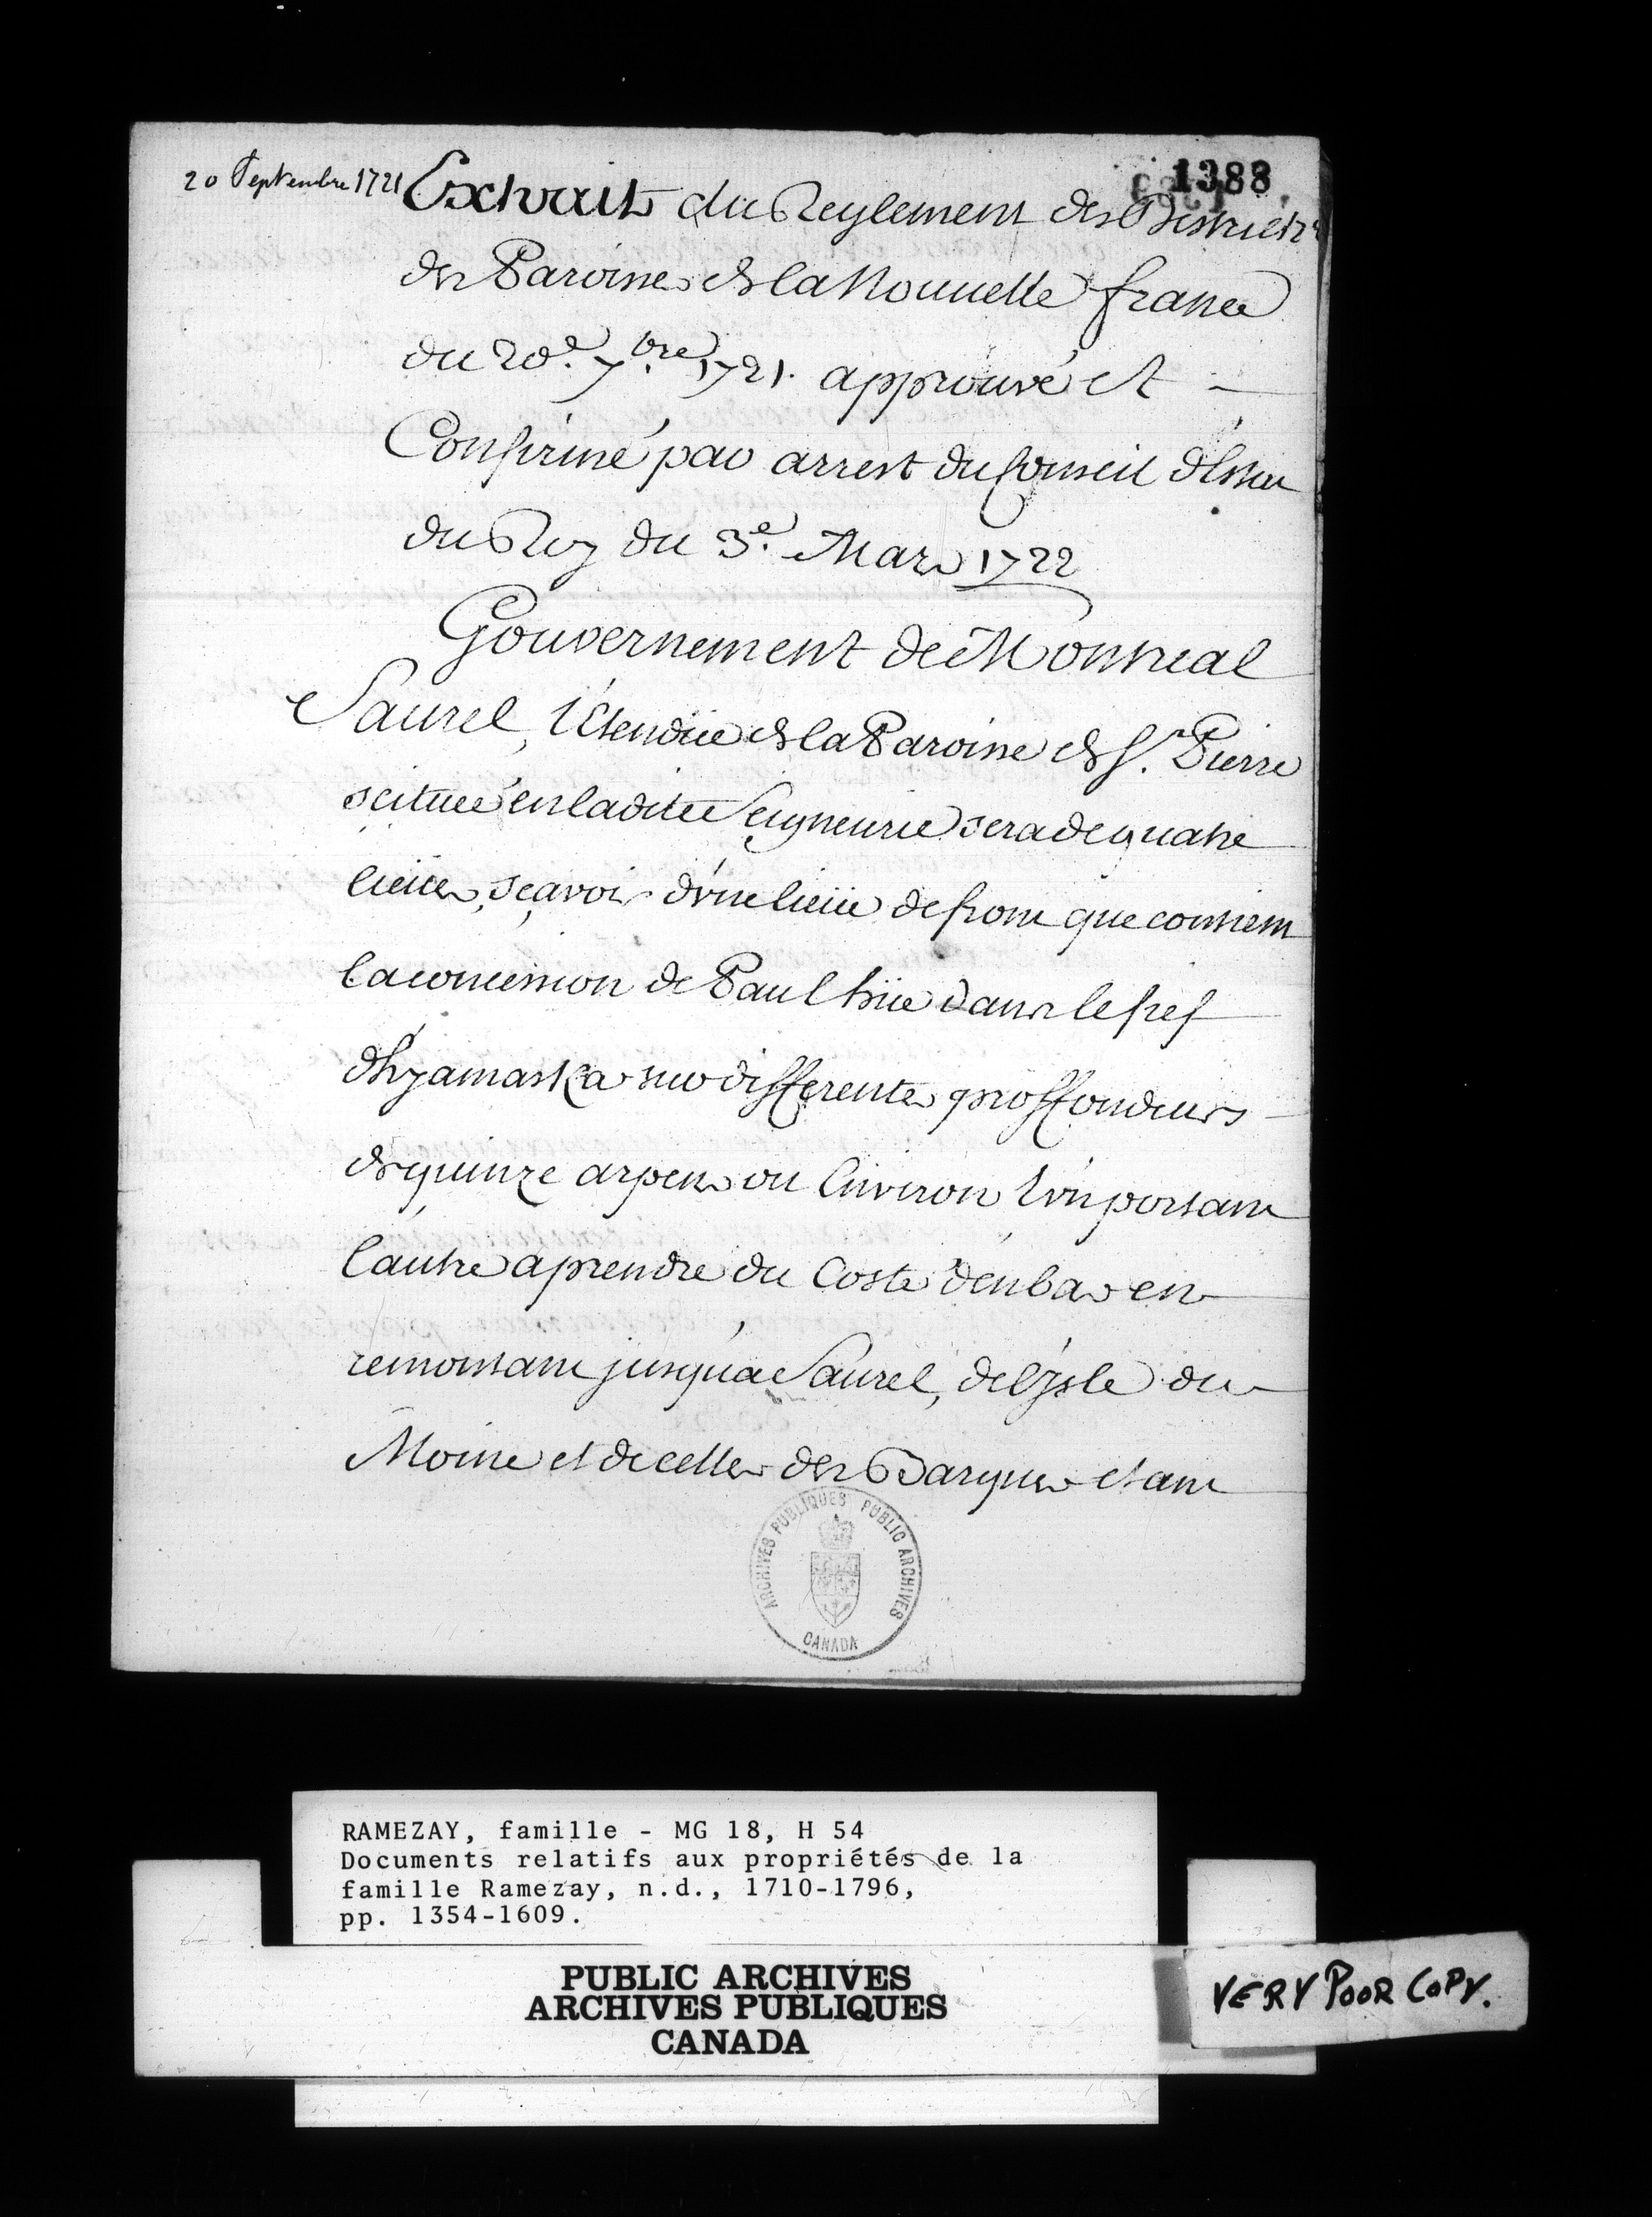 20 Septembre 1721
1388
Extrait du Reglement des Districts
des Paroisses de la Nouuelle france
du 20e. 7.bre 1721. approuvé et
Confirmé par arrest du Conseil d'Estat
du Roy du 3e. Mars 1722
Gouvernement de Monreal
Saurel, l'Etendüe de la Paroisse de St. Pierre
scituée en ladite Seigneurie sera de quatre
lieües, sçavoir d'vne lieüe de front que contient
la concession de Paul hüe dans le fief
d'hyamaska sur differentes proffondeurs
de quinze arpens ou Environ l'vn portant
l'autre a prendre du Costé d'enbas en
remontant jusqu'a Saurel, de l'jsle du
Moine et de celles des Barques etant
ARCHIVES PUBLIQUES PUBLIC ARCHIVES
CANADA
RAMEZAY, famille - MG 18, H 54
Documents relatifs aux propriétés de la
famille Ramezay, n.d., 1710-1796,
pp. 1354-1609.
PUBLIC ARCHIVES
ARCHIVES PUBLIQUES
CANADA
VERY POOR COPY.